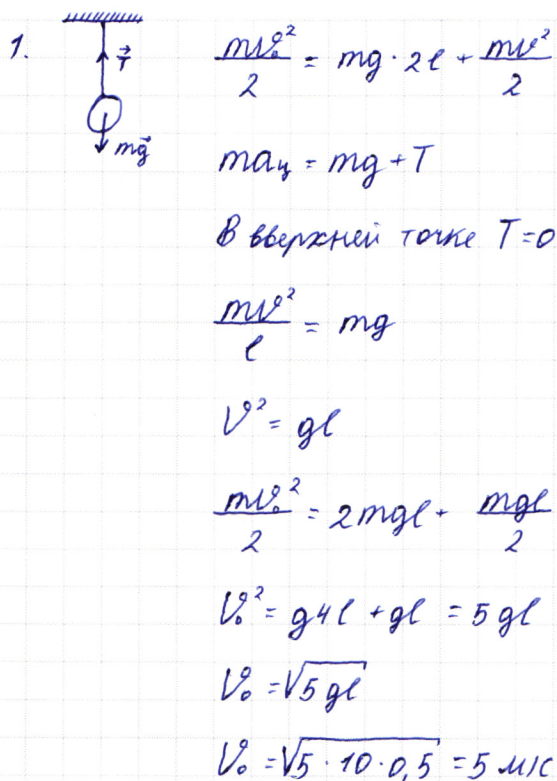 1.
T⃗
mg⃗
mv₀²/2 = mg · 2l + mv²/2
maц = mg + T
В вверхней точке T = 0
mv²/l = mg
v² = gl
mv₀²/2 = 2mgl + mgl/2
v₀² = g4l + gl = 5gl
v₀ = √5gl
v₀ = √5 · 10 · 0,5 = 5 м/с